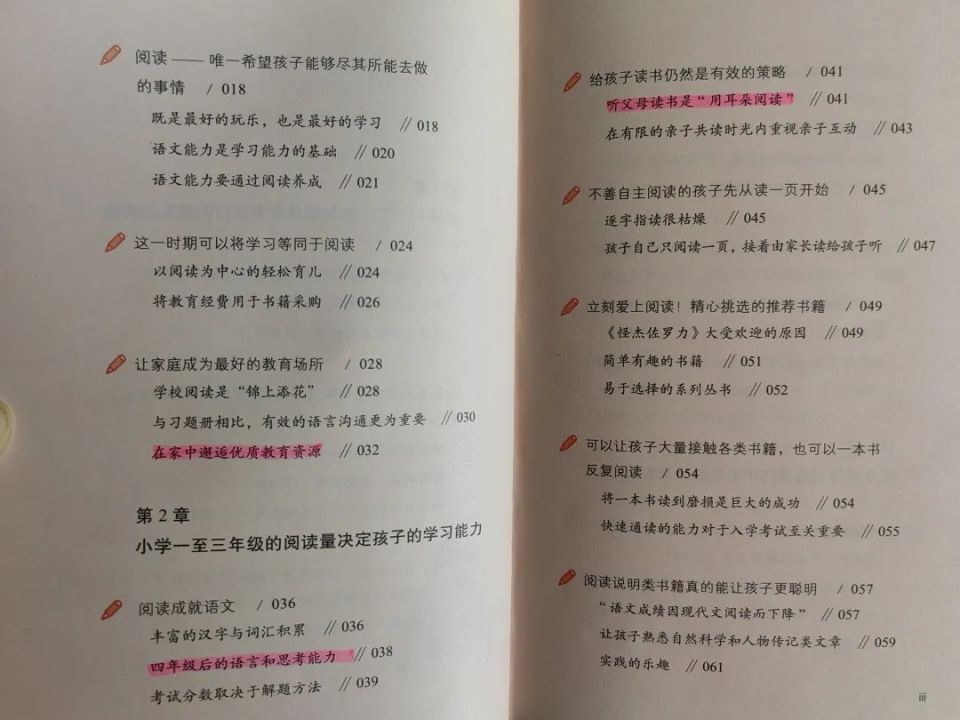 阅读——唯一希望孩子能够尽其所能去做
的事情 / 018
既是最好的玩乐，也是最好的学习 // 018
语文能力是学习能力的基础 // 020
语文能力要通过阅读养成 // 021
这一时期可以将学习等同于阅读 / 024
以阅读为中心的轻松育儿 // 024
将教育经费用于书籍采购 // 026
让家庭成为最好的教育场所 / 028
学校阅读是“锦上添花” // 028
与习题册相比，有效的语言沟通更为重要 // 030
在家中邂逅优质教育资源 // 032
第 2 章
小学一至三年级的阅读量决定孩子的学习能力
阅读成就语文 / 036
丰富的汉字与词汇积累 // 036
四年级后的语言和思考能力 // 038
考试分数取决于解题方法 // 039
给孩子读书仍然是有效的策略 / 041
听父母读书是“用耳朵阅读” // 041
在有限的亲子共读时光内重视亲子互动 // 043
不善自主阅读的孩子先从读一页开始 / 045
逐字指读很枯燥 // 045
孩子自己只阅读一页，接着由家长读给孩子听 // 047
立刻爱上阅读！精心挑选的推荐书籍 / 049
《怪杰佐罗力》大受欢迎的原因 // 049
简单有趣的书籍 // 051
易于选择的系列丛书 // 052
可以让孩子大量接触各类书籍，也可以一本书
反复阅读 / 054
将一本书读到磨损是巨大的成功 // 054
快速通读的能力对于入学考试至关重要 // 055
阅读说明类书籍真的能让孩子更聪明 / 057
“语文成绩因现代文阅读而下降” // 057
让孩子熟悉自然科学和人物传记类文章 // 059
实践的乐趣 // 061
iii